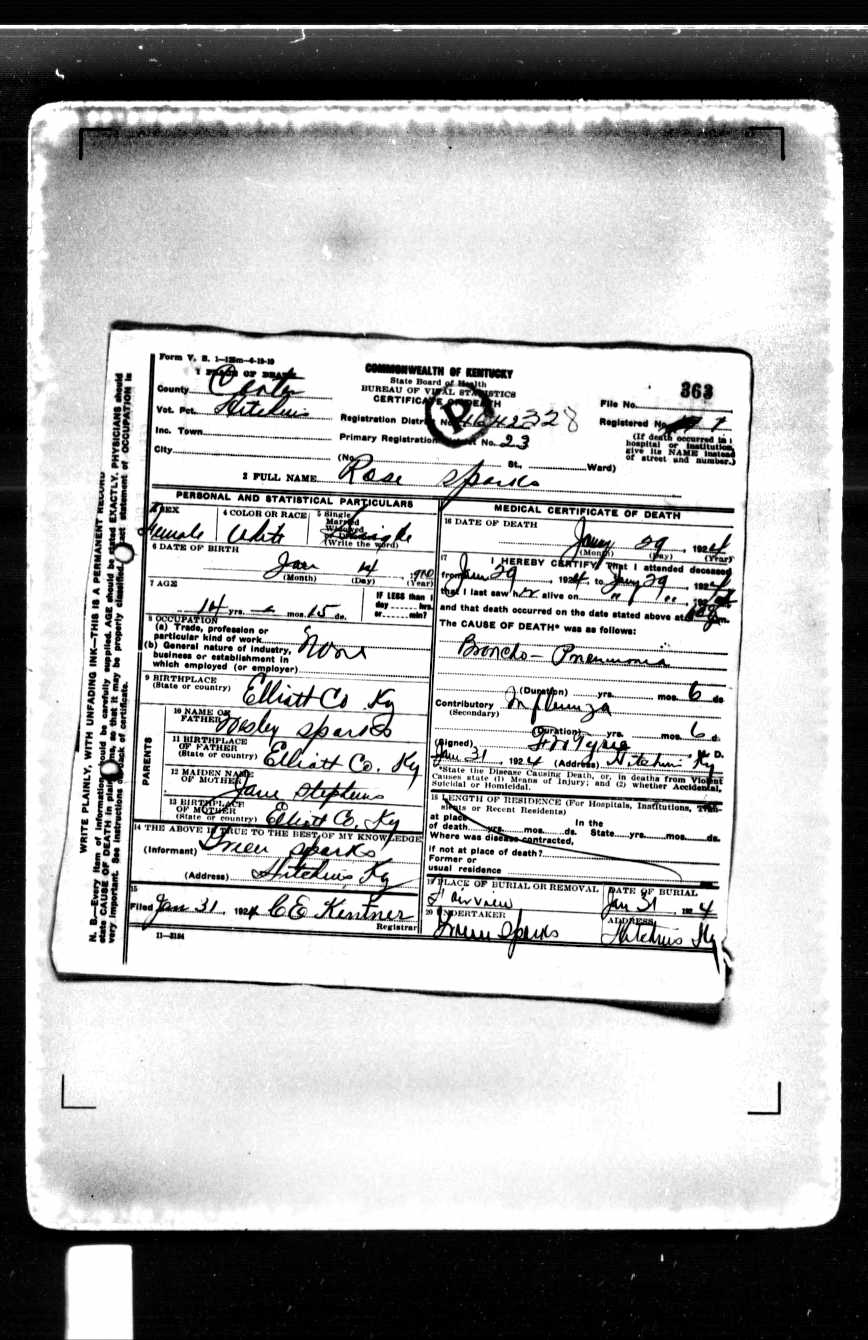 Form V. S. 1—125m—6-19-19
1 PLACE OF DEATH
County Carter
Vot. Pct. Hitchins
Inc. Town
City
COMMONWEALTH OF KENTUCKY
State Board of Health
BUREAU OF VITAL STATISTICS
CERTIFICATE OF DEATH
Registration District No.
Primary Registration District No. 23
(No. St., Ward)
363
File No.
Registered No. 7
(If death occurred in a
hospital or institution,
give its NAME instead
of street and number.)
2 FULL NAME Rose Sparks
PERSONAL AND STATISTICAL PARTICULARS
3 SEX
Female
4 COLOR OR RACE
White
5 Single
Married
Widowed
(Write the word)
Single
6 DATE OF BIRTH
Jan 14
(Month) (Day) (Year)
7 AGE
14 yrs. mos. 15 ds.
IF LESS than 1
day hrs.
or min?
8 OCCUPATION
(a) Trade, profession or
particular kind of work
(b) General nature of industry,
business or establishment in
which employed (or employer)
None
9 BIRTHPLACE
(State or country) Elliott Co Ky
PARENTS
10 NAME OF
FATHER Wesley Sparks
11 BIRTHPLACE
OF FATHER
(State or country) Elliott Co. Ky
12 MAIDEN NAME
OF MOTHER Jane Stephens
13 BIRTHPLACE
OF MOTHER
(State or country) Elliott Co. Ky
14 THE ABOVE IS TRUE TO THE BEST OF MY KNOWLEDGE
(Informant) Green Sparks
(Address) Hitchins, Ky
15
Filed Jan 31, 1924 C E Kentner
Registrar
11—3184
MEDICAL CERTIFICATE OF DEATH
16 DATE OF DEATH
Jany 29, 1924
(Month) (Day) (Year)
17 I HEREBY CERTIFY, That I attended deceased
from Jan 29, 1924 to Jany 29, 1924
that I last saw her alive on " " 192
and that death occurred on the date stated above at m.
The CAUSE OF DEATH* was as follows:
Broncho-Pneumonia
(Duration) yrs. mos. 6 ds
Contributory Influenza
(Secondary)
(Duration) yrs. mos. 6 d.
(Signed) M. D.
Jan 31, 1924 (Address) Hitchins Ky
*State the Disease Causing Death, or, in deaths from Violent
Causes state (1) Means of Injury; and (2) whether Accidental,
Suicidal or Homicidal.
18 LENGTH OF RESIDENCE (For Hospitals, Institutions, Tran-
sients or Recent Residents)
at place In the
of death yrs. mos. ds. State yrs. mos. ds.
Where was disease contracted,
if not at place of death?
Former or
usual residence
19 PLACE OF BURIAL OR REMOVAL
Fairview
DATE OF BURIAL
Jan 31, 1924
20 UNDERTAKER
Green Sparks
ADDRESS
Hitchins Ky
WRITE PLAINLY, WITH UNFADING INK—THIS IS A PERMANENT RECORD
N. B.—Every item of information should be carefully supplied. AGE should be stated EXACTLY. PHYSICIANS should
state CAUSE OF DEATH in plain terms, so that it may be properly classified. Exact statement of OCCUPATION is
very important. See instructions on back of certificate.